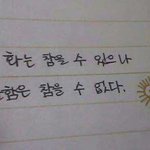 화는 참을 수 있으나
함은 참을 수 없다.